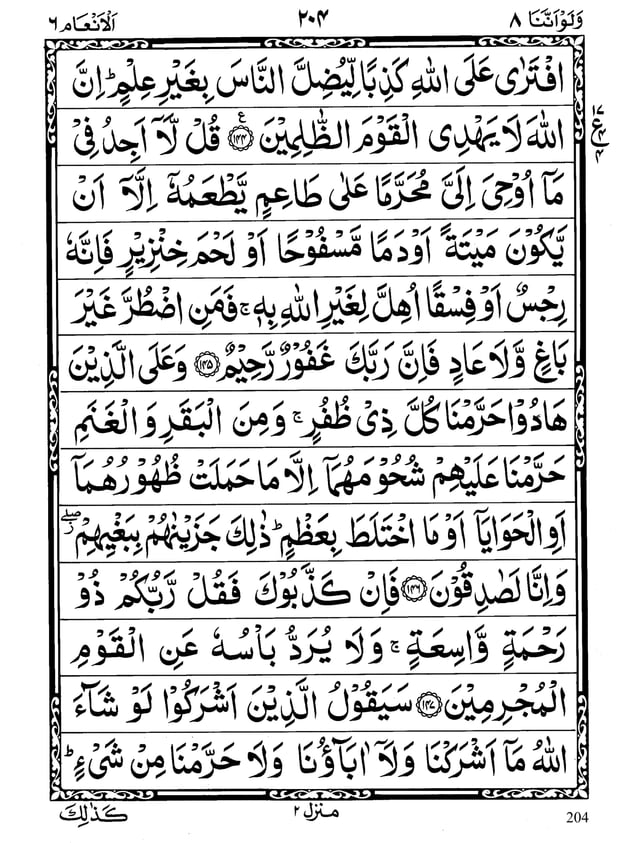 وَلَوْ اَنَّنَا ٨ ٢٠٤ اَلْاَنْعَام ٦
افْتَرٰى عَلَى اللّٰهِ كَذِبًا لِّيُضِلَّ النَّاسَ بِغَيْرِ عِلْمٍ ؕ اِنَّ
اللّٰهَ لَا يَهْدِى الْقَوْمَ الظّٰلِمِيْنَ ﴿۱۴۴﴾ ع قُلْ لَّاۤ اَجِدُ فِىْ
مَاۤ اُوْحِىَ اِلَىَّ مُحَرَّمًا عَلٰى طَاعِمٍ يَّطْعَمُهٗۤ اِلَّاۤ اَنْ
يَّكُوْنَ مَيْتَةً اَوْ دَمًا مَّسْفُوْحًا اَوْ لَحْمَ خِنْزِيْرٍ فَاِنَّهٗ
رِجْسٌ اَوْ فِسْقًا اُهِلَّ لِغَيْرِ اللّٰهِ بِهٖ ۚ فَمَنِ اضْطُرَّ غَيْرَ
بَاغٍ وَّلَا عَادٍ فَاِنَّ رَبَّكَ غَفُوْرٌ رَّحِيْمٌ ﴿۱۴۵﴾ وَعَلَى الَّذِيْنَ
هَادُوْا حَرَّمْنَا كُلَّ ذِىْ ظُفُرٍ ۚ وَمِنَ الْبَقَرِ وَالْغَنَمِ
حَرَّمْنَا عَلَيْهِمْ شُحُوْمَهُمَاۤ اِلَّا مَا حَمَلَتْ ظُهُوْرُهُمَاۤ
اَوِ الْحَوَايَاۤ اَوْ مَا اخْتَلَطَ بِعَظْمٍ ؕ ذٰلِكَ جَزَيْنٰهُمْ بِبَغْيِهِمْ ۖ
وَاِنَّا لَصٰدِقُوْنَ ﴿۱۴۶﴾ فَاِنْ كَذَّبُوْكَ فَقُلْ رَّبُّكُمْ ذُوْ
رَحْمَةٍ وَّاسِعَةٍ ۚ وَلَا يُرَدُّ بَاْسُهٗ عَنِ الْقَوْمِ
الْمُجْرِمِيْنَ ﴿۱۴۷﴾ سَيَقُوْلُ الَّذِيْنَ اَشْرَكُوْا لَوْ شَآءَ
اللّٰهُ مَاۤ اَشْرَكْنَا وَلَاۤ اٰبَآؤُنَا وَلَا حَرَّمْنَا مِنْ شَىْءٍ ؕ
۱۷ ع ۴ ۴
كَذٰلِكَ منزل ٢ 204